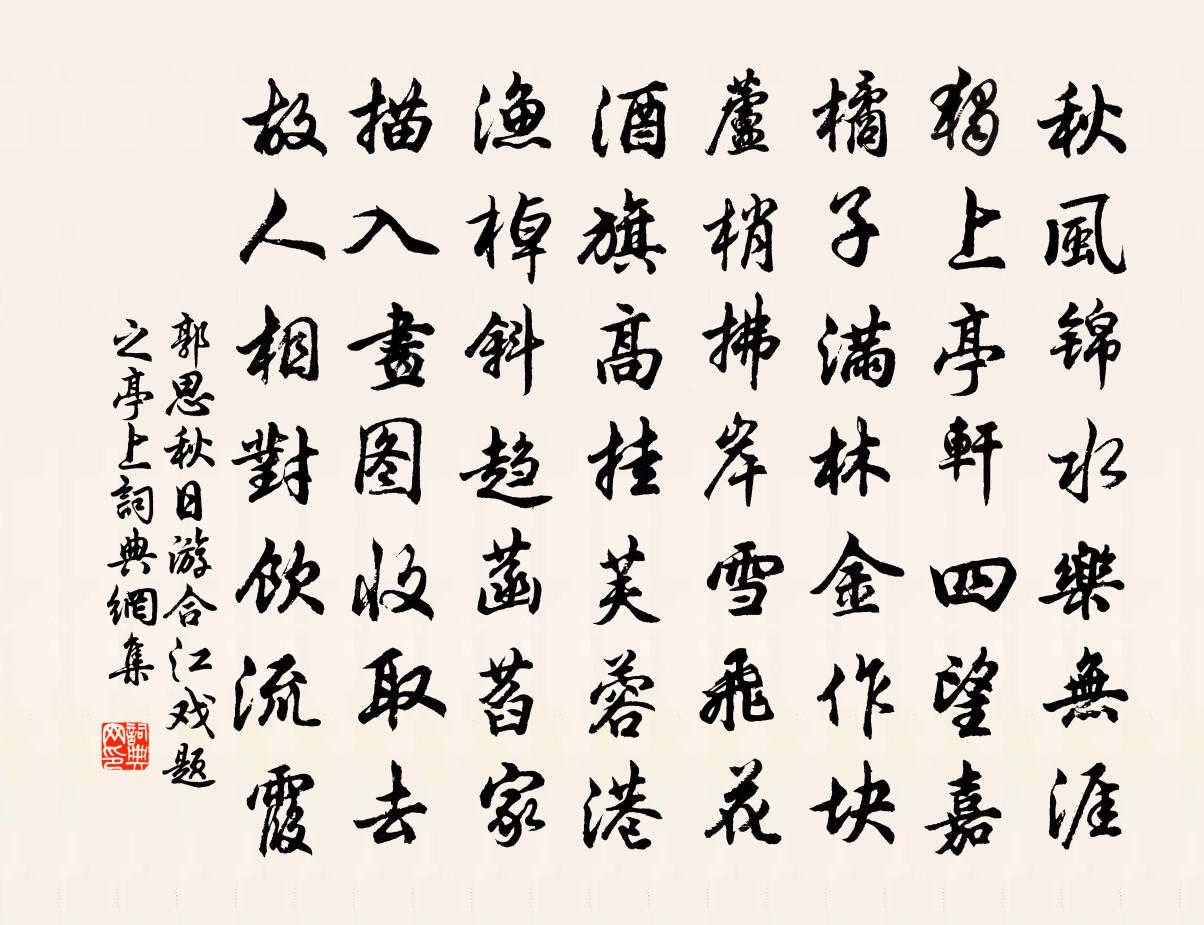 秋風锦水樂無涯
獨上亭軒四望嘉
橘子滿林金作块
蘆梢拂岸雪飛花
酒旗高挂芙蓉港
渔棹斜趋菡萏家
描入畫图收取去
故人相對飲流霞
郭思秋日游合江戏题
之亭上詞典網集
詞典网印